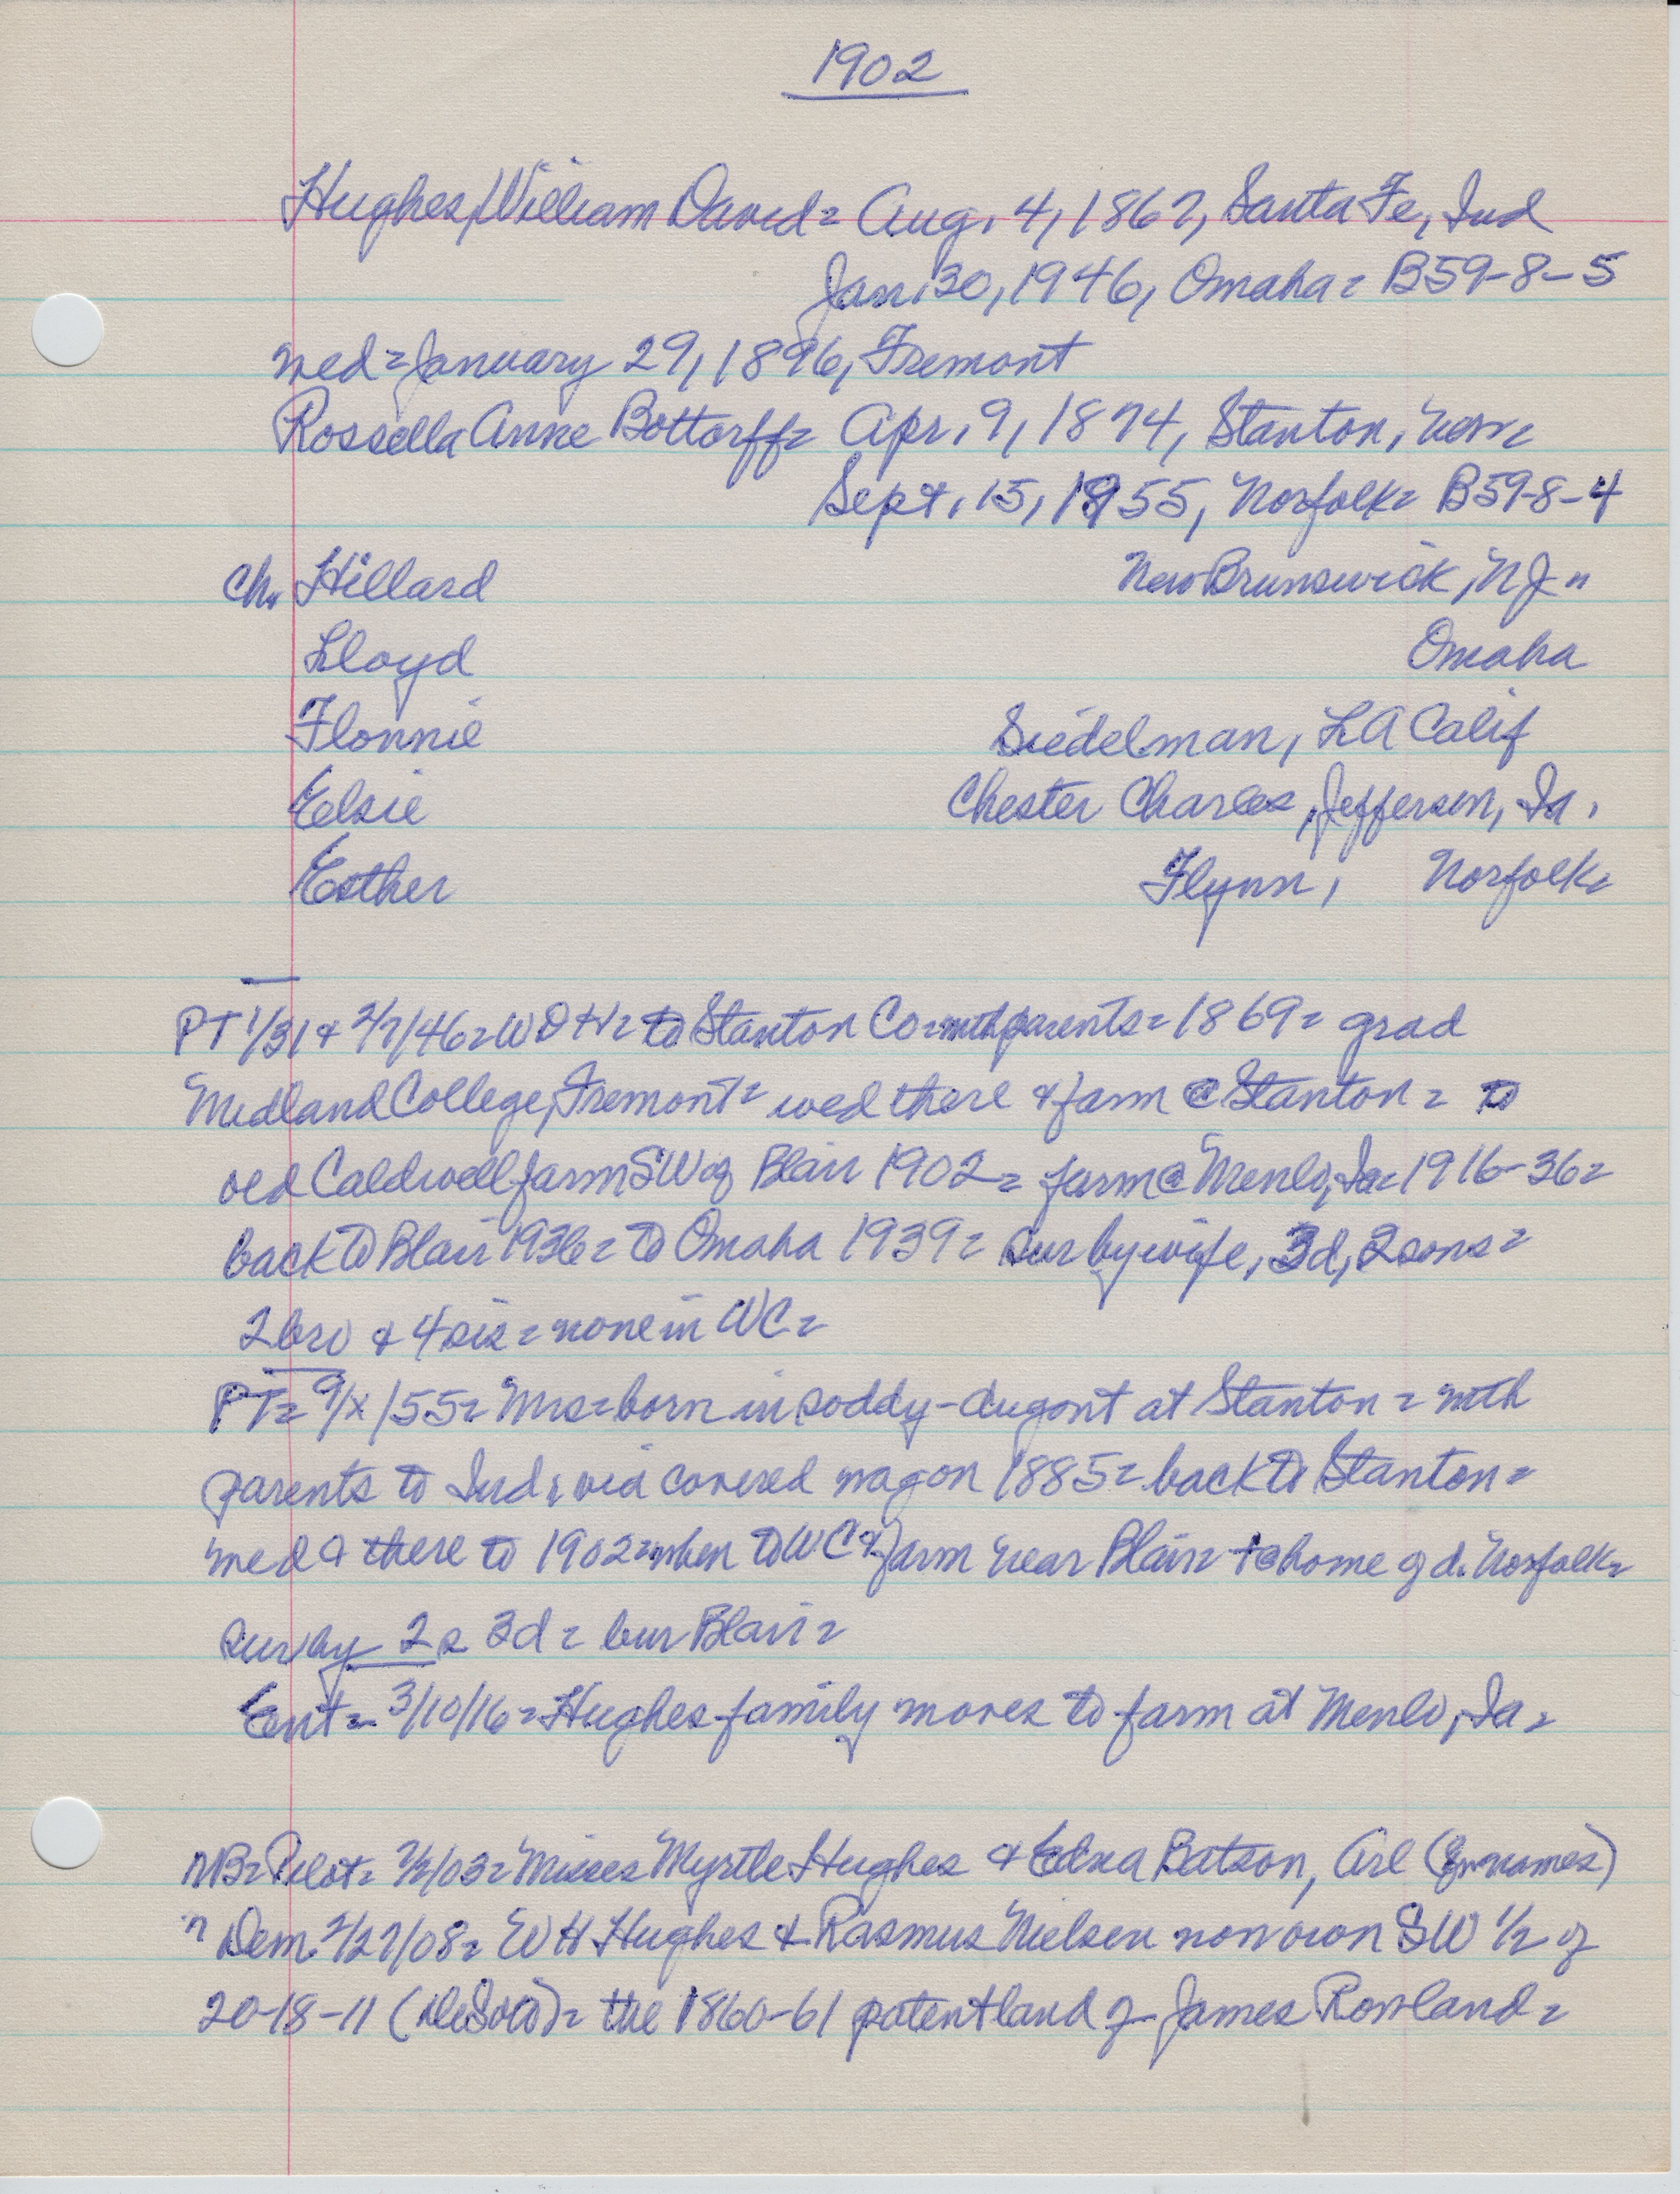 1902
Hughes, William David= Aug. 4, 1867, Santa Fe, Ind
Jan. 30, 1946, Omaha= B59-8-5
wed= January 29, 1896, Fremont
Rossella Anne Bottorff= Apr. 9, 1874, Stanton,
Sept. 15, 1955, Norfolk= B59-8-4
Ch. Hillard New Brunswick, NJ
Lloyd Omaha
Flonnie Siedelman, LA Calif
Elsie Chester Charles, Jefferson, Ia.
Esther Flynn, Norfolk=
PT 1/31 & 2/7/46= WDH= to Stanton Co= with parents= 1869= grad
Midland College, Fremont= wed there & farm @ Stanton= to
old Caldwell farm SW of Blair 1902= farm @ Menlo, Ia= 1916-36=
back to Blair 1936= to Omaha 1939= sur by wife, 3d, 2 sons=
2 bro & 4 sis= none in WC=
PT= 9/x/55= Mrs= born in soddy-dugout at Stanton= with
parents to Ind. via covered wagon 1885= back to Stanton=
wed & there to 1902= when to WC & farm near Blair= + @ home of d. Norfolk=
sur by 2s 3d= bur Blair=
Ent= 3/10/16= Hughes family moves to farm at Menlo, Ia=
NB= Pilot= Misses Myrtle Hughes & Edna Batson, Arl
Dem. 2/27/08= WH Hughes & Rasmus Nielsen now own SW 1/2 of
20-18-11 (DeSoto)= the 1860-61 patent land of James Rowland=